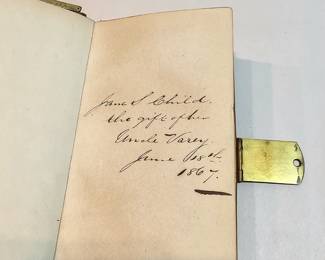 Jane S Child.
the gift of her
Uncle Varey
June 18th
1867.